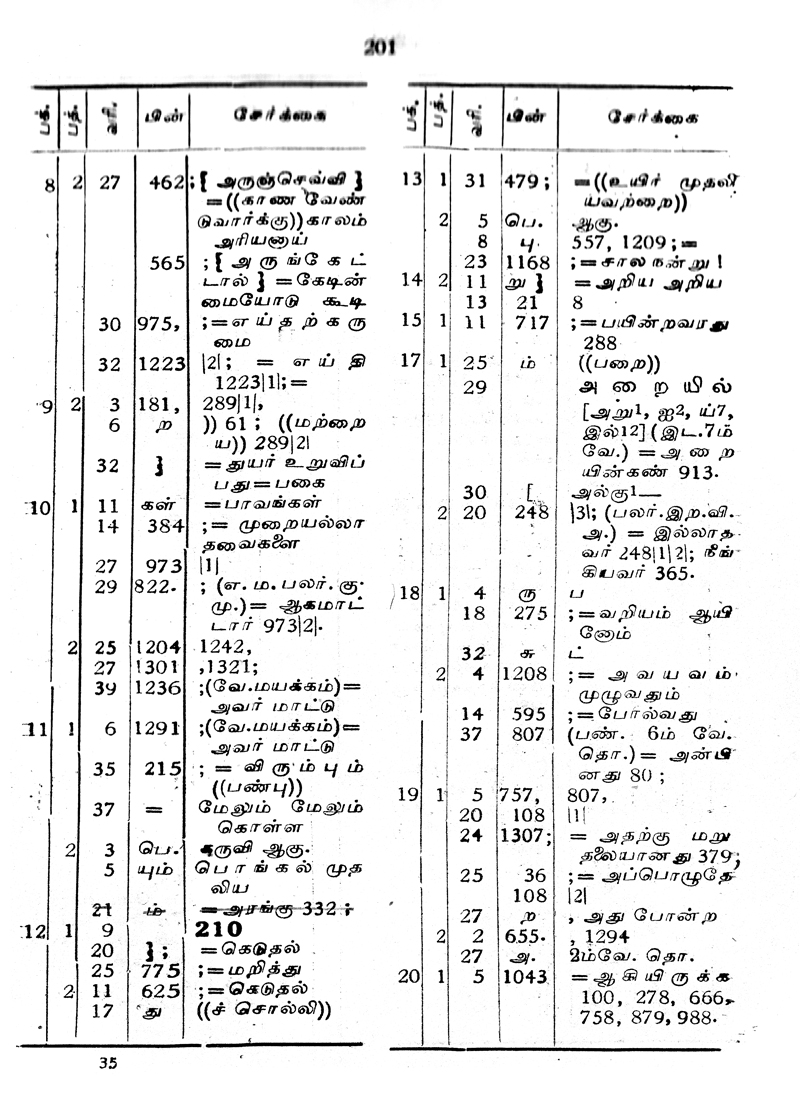 201
பக். பத். வரி. பின் சேர்க்கை
8 2 27 462 ;{ அருஞ்செவ்வி }
=((காண வேண்
டுவார்க்கு)) காலம்
அரியனாய்
565 ;{ அ ரு ங் கே ட்
டால் } = கேடின்
மையோடு கூடி
30 975, ;= எ ய் த ற் க ரு
மை
32 1223 |2|; = எ ய் தி
1223|1|; =
9 2 3 181, 289|1|,
6 ற )) 61 ; ((மற்றை
ய)) 289|2|
32 } = துயர் உறுவிப்
பது = பகை
10 1 11 கள் = பாவங்கள்
14 384 ;= முறையல்லா
தவைகளை
27 973 |1|
29 822. ; (எ. ம. பலர். கு.
மு.) = ஆகமாட்
டார் 973|2|.
2 25 1204 1242,
27 1301 ,1321;
39 1236 ;(வே.மயக்கம்)=
அவர் மாட்டு
11 1 6 1291 ;(வே.மயக்கம்)=
அவர் மாட்டு
35 215 ; = வி ரு ம் பு ம்
((பண்பு))
37 = மேலும் மேலும்
கொள்ள
2 3 பெ. கருவி ஆகு.
5 யும் பொ ங் க ல் முத
லிய
21 ம் = அரங்கு 332 ;
12 1 9 210
20 }; = கெடுதல்
25 775 ;= மறித்து
2 11 625 ;= கெடுதல்
17 து ((ச் சொல்லி))
35
பக். பத். வரி. பின் சேர்க்கை
13 1 31 479 ; =((உயிர் முதலி
யவற்றை))
2 5 பெ. ஆகு.
8 பு 557, 1209 ; =
23 1168 ;= சால நன்று !
14 2 11 று } = அறிய அறிய
13 21 8
15 1 11 717 ;= பயின்றவரது
288
17 1 25 ம் ((பறை))
29 அ றை யி ல்
[அறு1, ஐ2, ய்7,
இல்12] (இட.7ம்
வே.) = அ றை
யின்கண் 913.
30 [ அல்கு1—
2 20 248 |3|; (பலர்.இற.வி.
அ.) = இல்லாத
வர் 248|1|2|; நீங்
கியவர் 365.
18 1 4 ரு ப
18 275 ;= வறியம் ஆயி
னோம்
32 சு ட்
2 4 1208 ;= அ வ ய வ ம்
முழுவதும்
14 595 ;= போல்வது
37 807 (பண். 6ம் வே.
தொ.) = அன்பி
னது 80 ;
19 1 5 757, 807,
20 108 |1|
24 1307; = அதற்கு மறு
தலையானது 379;
25 36 ;= அப்பொழுதே
108 |2|
27 ற , அது போன்ற
2 2 655. , 1294
27 அ. 2ம்வே. தொ.
20 1 5 1043 = ஆ கி யிரு க் க
100, 278, 666,
758, 879, 988.